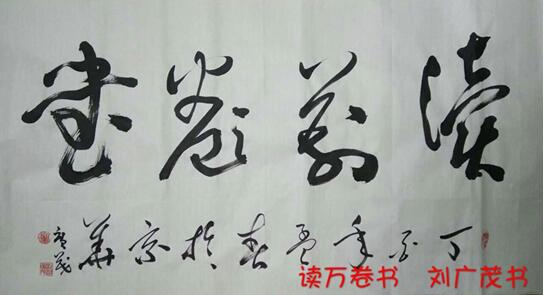 读万卷书
丁酉年孟春于京华
广茂
读万卷书 刘广茂书